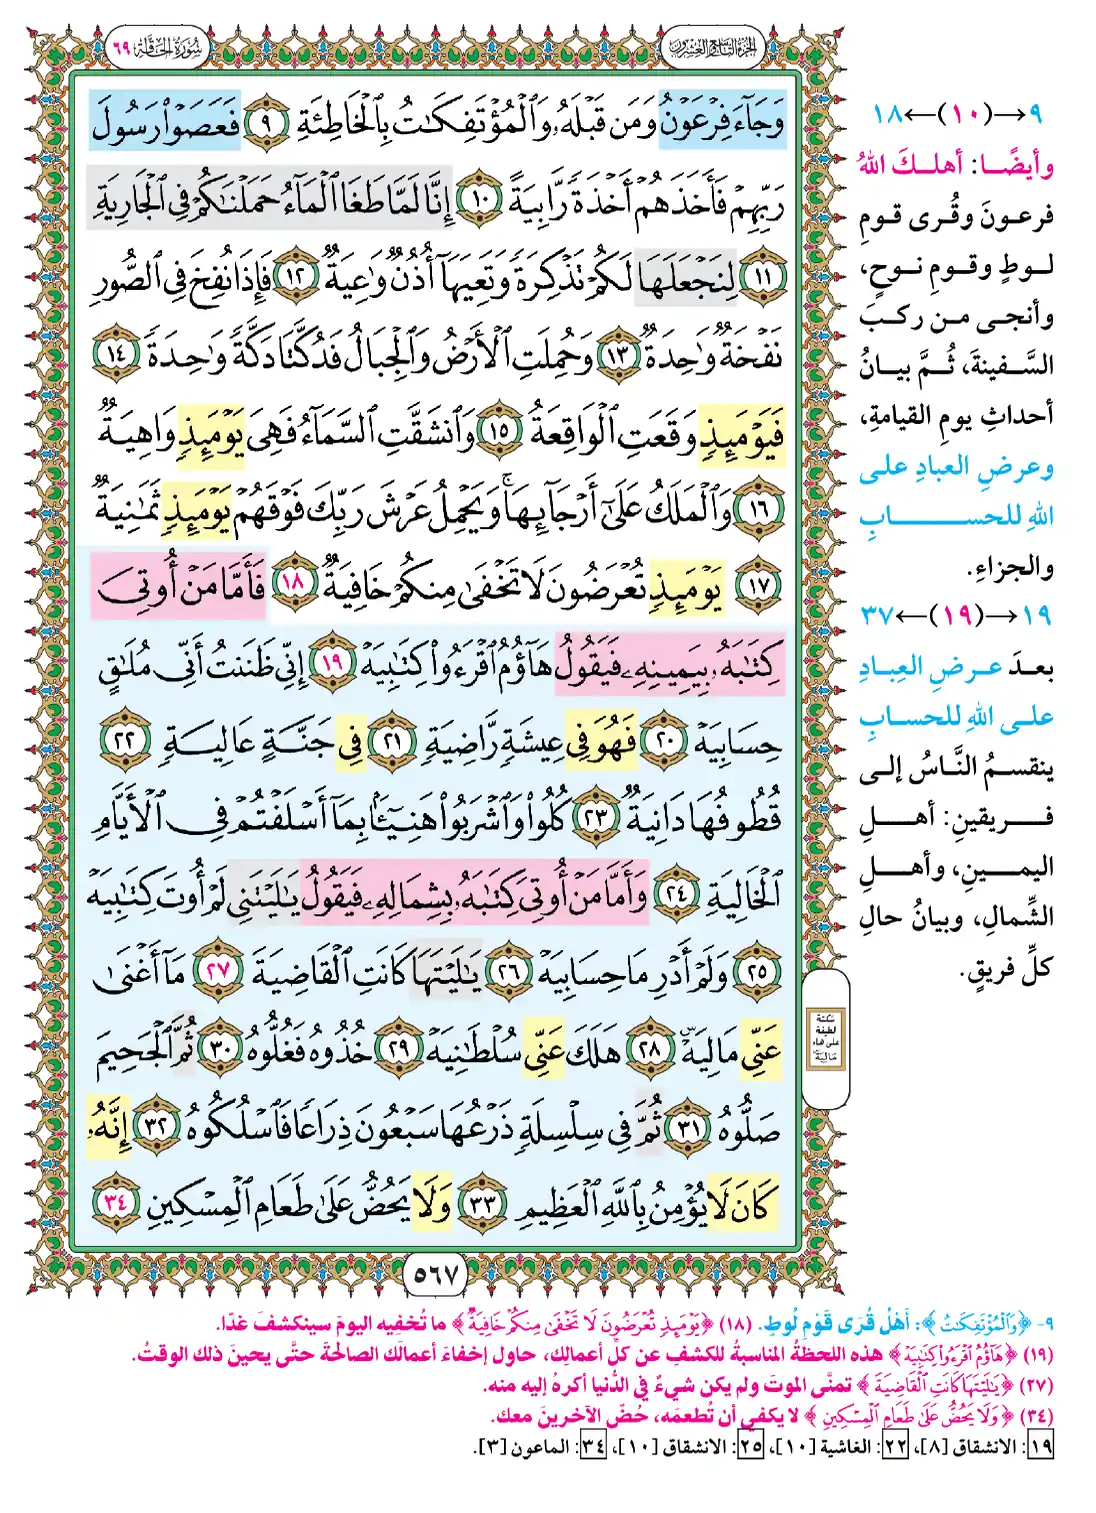 الجزء التاسع والعشرون
سورة الحاقة ٦٩
وَجَآءَ فِرْعَوْنُ وَمَن قَبْلَهُۥ وَٱلْمُؤْتَفِكَٰتُ بِٱلْخَاطِئَةِ ٩ فَعَصَوْا۟ رَسُولَ
رَبِّهِمْ فَأَخَذَهُمْ أَخْذَةً رَّابِيَةً ١٠ إِنَّا لَمَّا طَغَا ٱلْمَآءُ حَمَلْنَٰكُمْ فِى ٱلْجَارِيَةِ
١١ لِنَجْعَلَهَا لَكُمْ تَذْكِرَةً وَتَعِيَهَآ أُذُنٌ وَٰعِيَةٌ ١٢ فَإِذَا نُفِخَ فِى ٱلصُّورِ
نَفْخَةٌ وَٰحِدَةٌ ١٣ وَحُمِلَتِ ٱلْأَرْضُ وَٱلْجِبَالُ فَدُكَّتَا دَكَّةً وَٰحِدَةً ١٤
فَيَوْمَئِذٍ وَقَعَتِ ٱلْوَاقِعَةُ ١٥ وَٱنشَقَّتِ ٱلسَّمَآءُ فَهِىَ يَوْمَئِذٍ وَاهِيَةٌ
١٦ وَٱلْمَلَكُ عَلَىٰٓ أَرْجَآئِهَا ۚ وَيَحْمِلُ عَرْشَ رَبِّكَ فَوْقَهُمْ يَوْمَئِذٍ ثَمَٰنِيَةٌ
١٧ يَوْمَئِذٍ تُعْرَضُونَ لَا تَخْفَىٰ مِنكُمْ خَافِيَةٌ ١٨ فَأَمَّا مَنْ أُوتِىَ
كِتَٰبَهُۥ بِيَمِينِهِۦ فَيَقُولُ هَآؤُمُ ٱقْرَءُوا۟ كِتَٰبِيَهْ ١٩ إِنِّى ظَنَنتُ أَنِّى مُلَٰقٍ
حِسَابِيَهْ ٢٠ فَهُوَ فِى عِيشَةٍ رَّاضِيَةٍ ٢١ فِى جَنَّةٍ عَالِيَةٍ ٢٢
قُطُوفُهَا دَانِيَةٌ ٢٣ كُلُوا۟ وَٱشْرَبُوا۟ هَنِيٓـًٔۢا بِمَآ أَسْلَفْتُمْ فِى ٱلْأَيَّامِ
ٱلْخَالِيَةِ ٢٤ وَأَمَّا مَنْ أُوتِىَ كِتَٰبَهُۥ بِشِمَالِهِۦ فَيَقُولُ يَٰلَيْتَنِى لَمْ أُوتَ كِتَٰبِيَهْ
٢٥ وَلَمْ أَدْرِ مَا حِسَابِيَهْ ٢٦ يَٰلَيْتَهَا كَانَتِ ٱلْقَاضِيَةَ ٢٧ مَآ أَغْنَىٰ
عَنِّى مَالِيَهْ ۜ ٢٨ هَلَكَ عَنِّى سُلْطَٰنِيَهْ ٢٩ خُذُوهُ فَغُلُّوهُ ٣٠ ثُمَّ ٱلْجَحِيمَ
صَلُّوهُ ٣١ ثُمَّ فِى سِلْسِلَةٍ ذَرْعُهَا سَبْعُونَ ذِرَاعًا فَٱسْلُكُوهُ ٣٢ إِنَّهُۥ
كَانَ لَا يُؤْمِنُ بِٱللَّهِ ٱلْعَظِيمِ ٣٣ وَلَا يَحُضُّ عَلَىٰ طَعَامِ ٱلْمِسْكِينِ ٣٤
٥٦٧
٩→(١٠)←١٨
وأيضًا: أهلكَ اللهُ
فرعونَ وقُرى قومِ
لوطٍ وقومِ نوحٍ،
وأنجى من ركبَ
السَّفينةَ، ثُمَّ بيانُ
أحداثِ يومِ القيامةِ،
وعرضِ العبادِ على
اللهِ للحسابِ
والجزاءِ.
١٩→(١٩)←٣٧
بعدَ عرضِ العِبادِ
على اللهِ للحسابِ
ينقسمُ النَّاسُ إلى
فريقينِ: أهلِ
اليمينِ، وأهلِ
الشِّمالِ، وبيانُ حالِ
كلِّ فريقٍ.
سكتة
لطيفة
على هاء
ماليه
٩- ﴿وَٱلْمُؤْتَفِكَٰتُ﴾: أَهْلُ قُرَى قَوْمِ لُوطٍ. (١٨) ﴿يَوْمَئِذٍ تُعْرَضُونَ لَا تَخْفَىٰ مِنكُمْ خَافِيَةٌ﴾ ما تُخفِيه اليومَ سينكشفُ غدًا.
(١٩) ﴿هَآؤُمُ ٱقْرَءُوا۟ كِتَٰبِيَهْ﴾ هذه اللحظةُ المناسبةُ للكشفِ عن كلِّ أعمالِك، حاول إخفاءَ أعمالك الصالحة حتَّى يحينَ ذلك الوقتُ.
(٢٧) ﴿يَٰلَيْتَهَا كَانَتِ ٱلْقَاضِيَةَ﴾ تمنَّى الموتَ ولم يكن شيءٌ في الدُّنيا أكرهُ إليه منه.
(٣٤) ﴿وَلَا يَحُضُّ عَلَىٰ طَعَامِ ٱلْمِسْكِينِ﴾ لا يكفي أن تُطعمَه، حُضَّ الآخرينَ معك.
١٩: الانشقاق [٨]، ٢٢: الغاشية [١٠]، ٢٥: الانشقاق [١٠]، ٣٤: الماعون [٣].